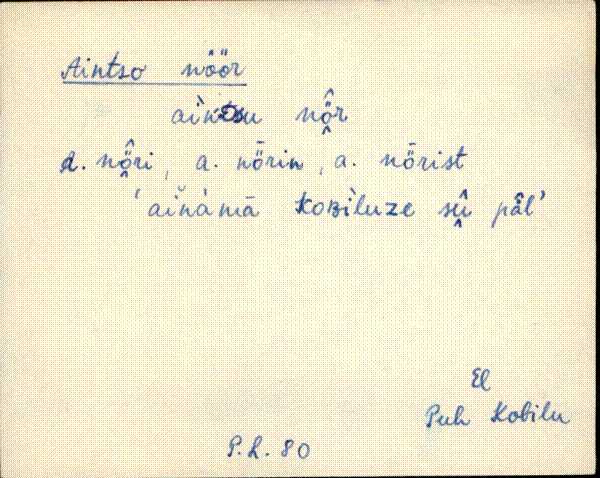 Aintso nöör
aìntsu nö̭̂r
a. nö̭̂ri, a. nȫrin, a. nȫrist
'aiňàmā KoBìluze sṷ̂ pâl'
El
Puh Kobilu
P.L. 80